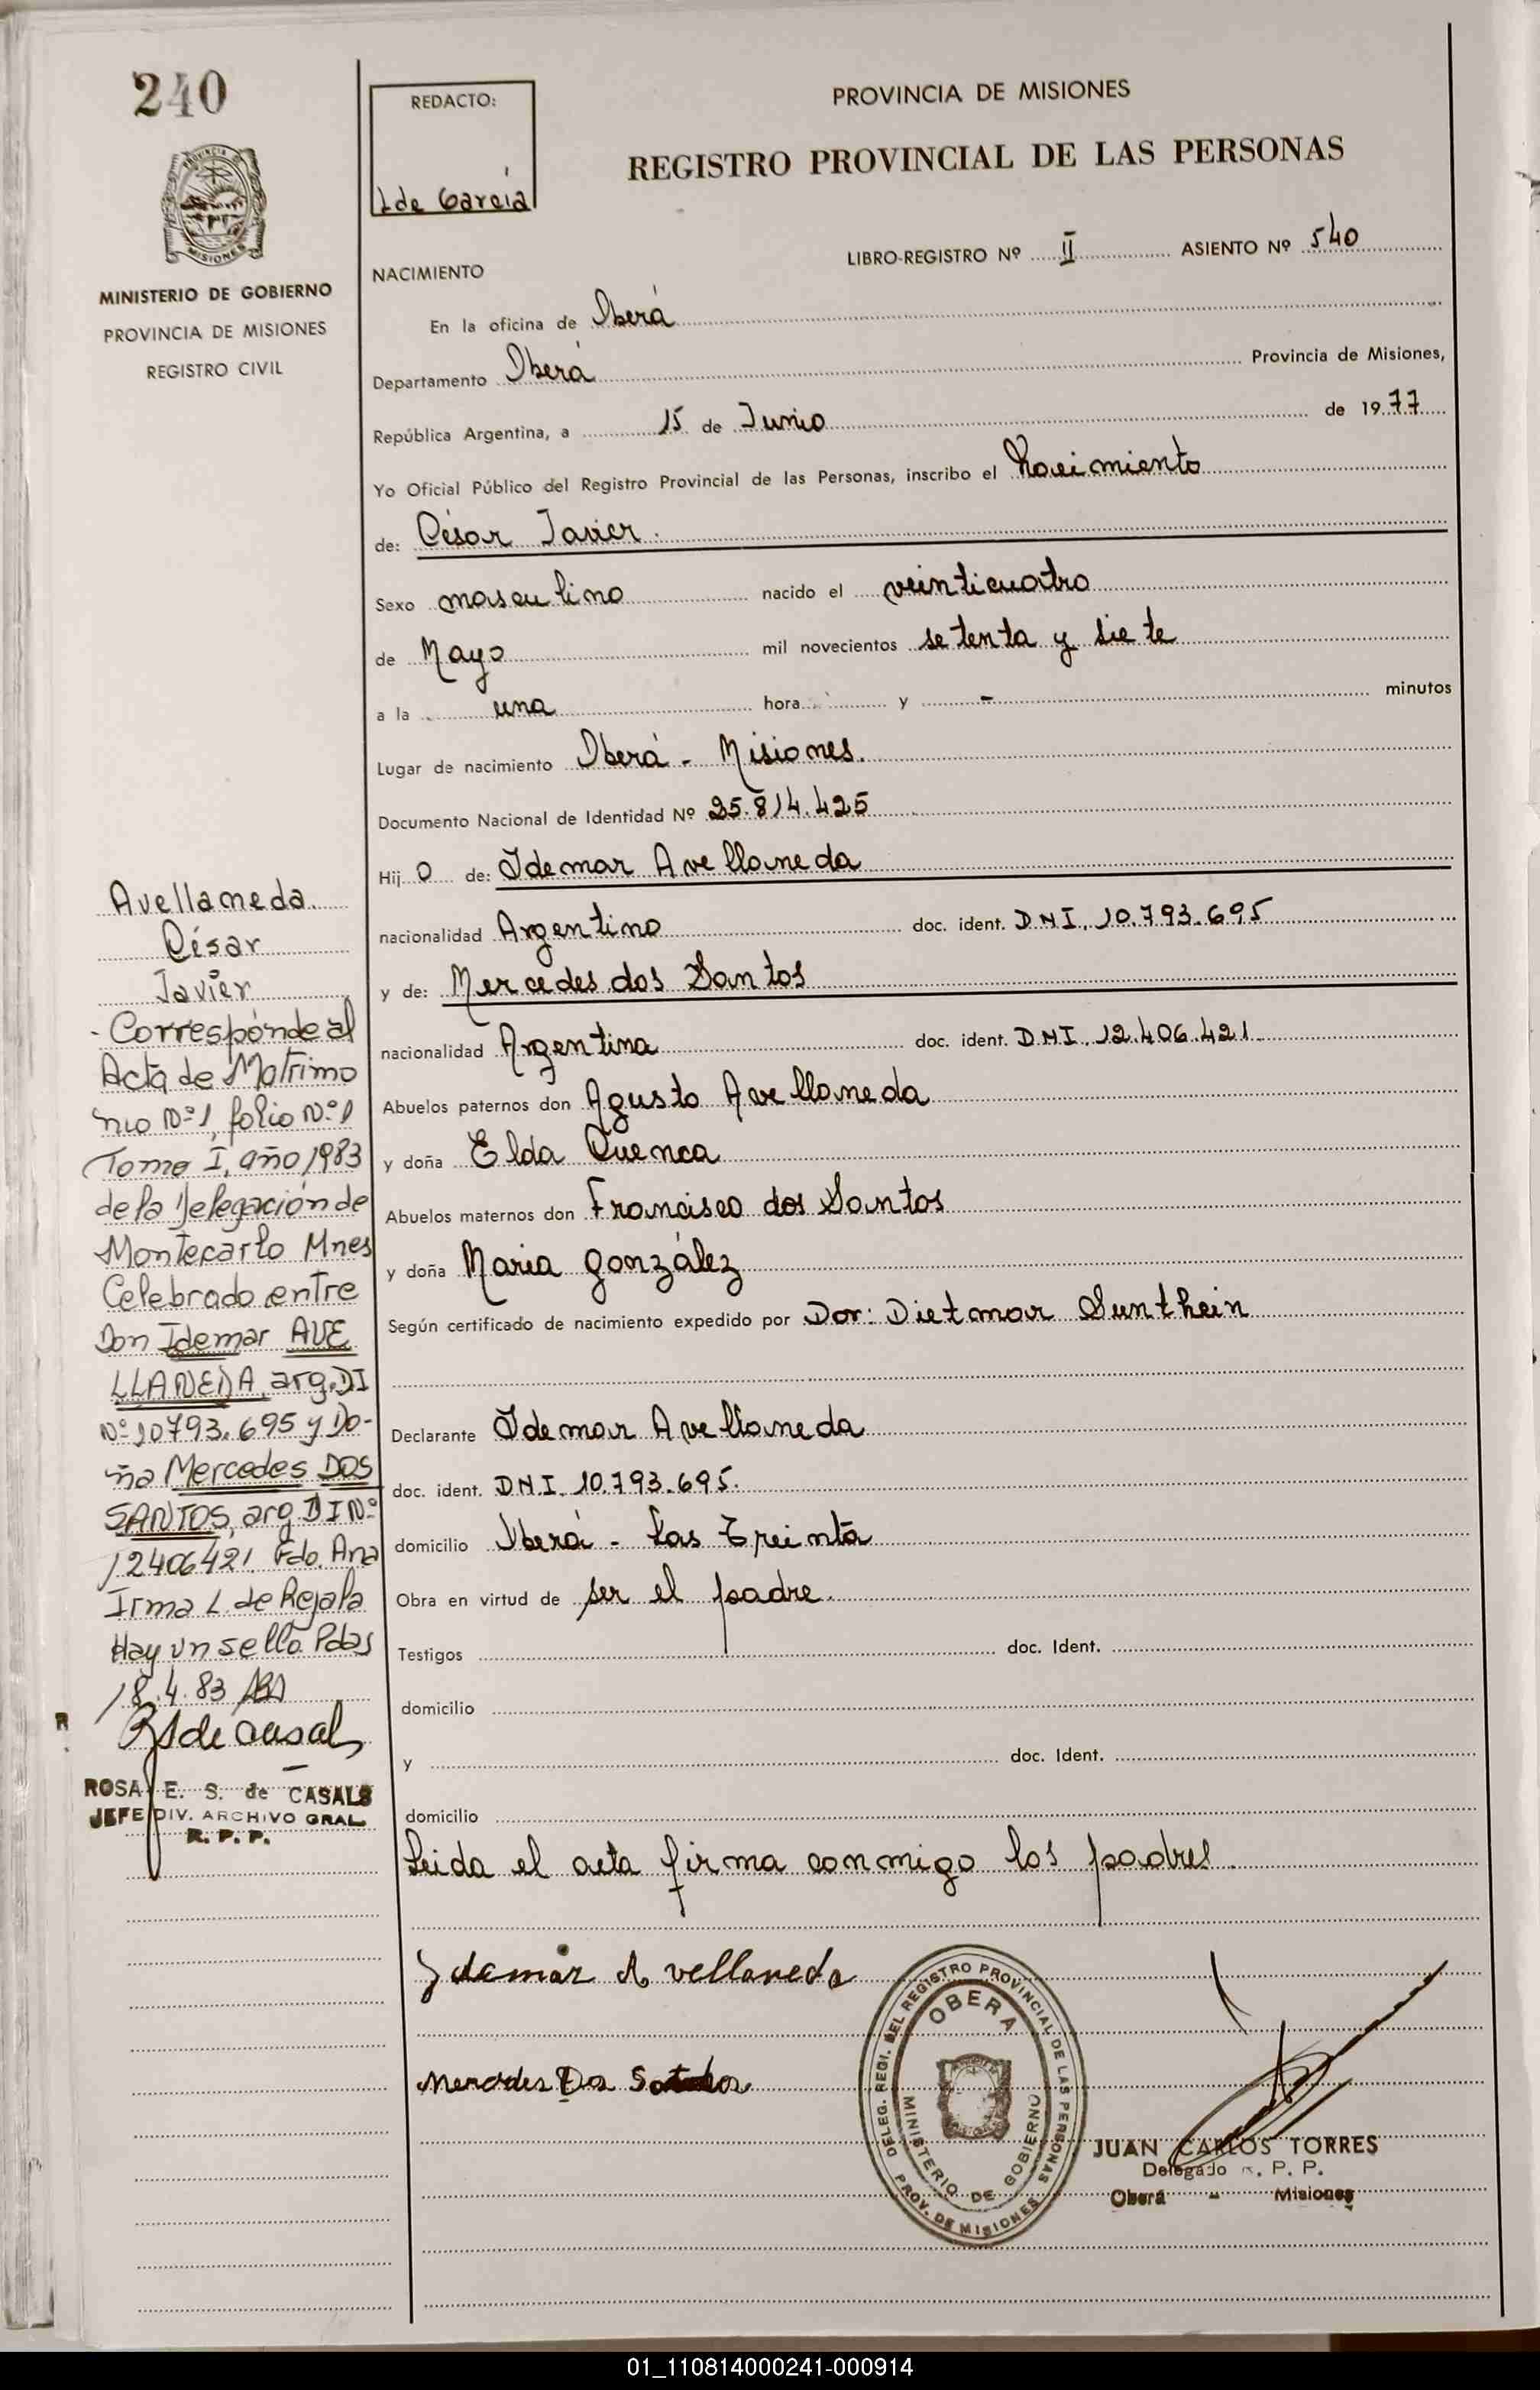 240
PROVINCIA DE MISIONES
MINISTERIO DE GOBIERNO
PROVINCIA DE MISIONES
REGISTRO CIVIL
Avellaneda
César
Javier
- Corresponde al
Acta de Matrimo
nio Nº 1, folio Nº 1
Tomo I, año 1983
de la Delegación de
Montecarlo Mnes
Celebrado entre
Don Idemar AVE
LLANEDA, arg. DI
Nº 10793.695 y Do-
ña Mercedes DOS
SANTOS, arg. DI Nº
12406421. Fdo. Ana
Irma L. de Rejala
Hay un sello. Pdas
18.4.83
ROSA E. S. de CASALS
JEFE DIV. ARCHIVO GRAL.
R. P. P.
REDACTO:
L de García
PROVINCIA DE MISIONES
REGISTRO PROVINCIAL DE LAS PERSONAS
LIBRO-REGISTRO Nº II ASIENTO Nº 540
NACIMIENTO
En la oficina de Oberá
Departamento Oberá Provincia de Misiones,
República Argentina, a 15 de Junio de 1977
Yo Oficial Público del Registro Provincial de las Personas, inscribo el Nacimiento
de: César Javier.
Sexo masculino nacido el veinticuatro
de Mayo mil novecientos setenta y siete
a la una hora y - minutos
Lugar de nacimiento Oberá - Misiones.
Documento Nacional de Identidad Nº 25.814.425
Hijo de: Idemar Avellaneda
nacionalidad Argentino doc. ident. DNI. 10.793.695
y de: Mercedes dos Santos
nacionalidad Argentina doc. ident. DNI. 12.406.421
Abuelos paternos don Agusto Avellaneda
y doña Elda Cuenca
Abuelos maternos don Francisco dos Santos
y doña Maria González
Según certificado de nacimiento expedido por Dor: Dietmar Sunthein
Declarante Idemar Avellaneda
doc. ident. DNI. 10.793.695.
domicilio Oberá - Las Treinta
Obra en virtud de ser el padre.
Testigos doc. Ident.
domicilio
y doc. Ident.
domicilio
Leida el acta firma conmigo los padres.
Idemar Avellaneda
Mercedes Dos
DELEG. REGI. DEL REGISTRO PROVINCIAL DE LAS PERSONAS
OBERA
MINISTERIO DE GOBIERNO
PROV. DE MISIONES
JUAN CARLOS TORRES
Delegado R. P. P.
Oberá - Misiones
01_110814000241-000914